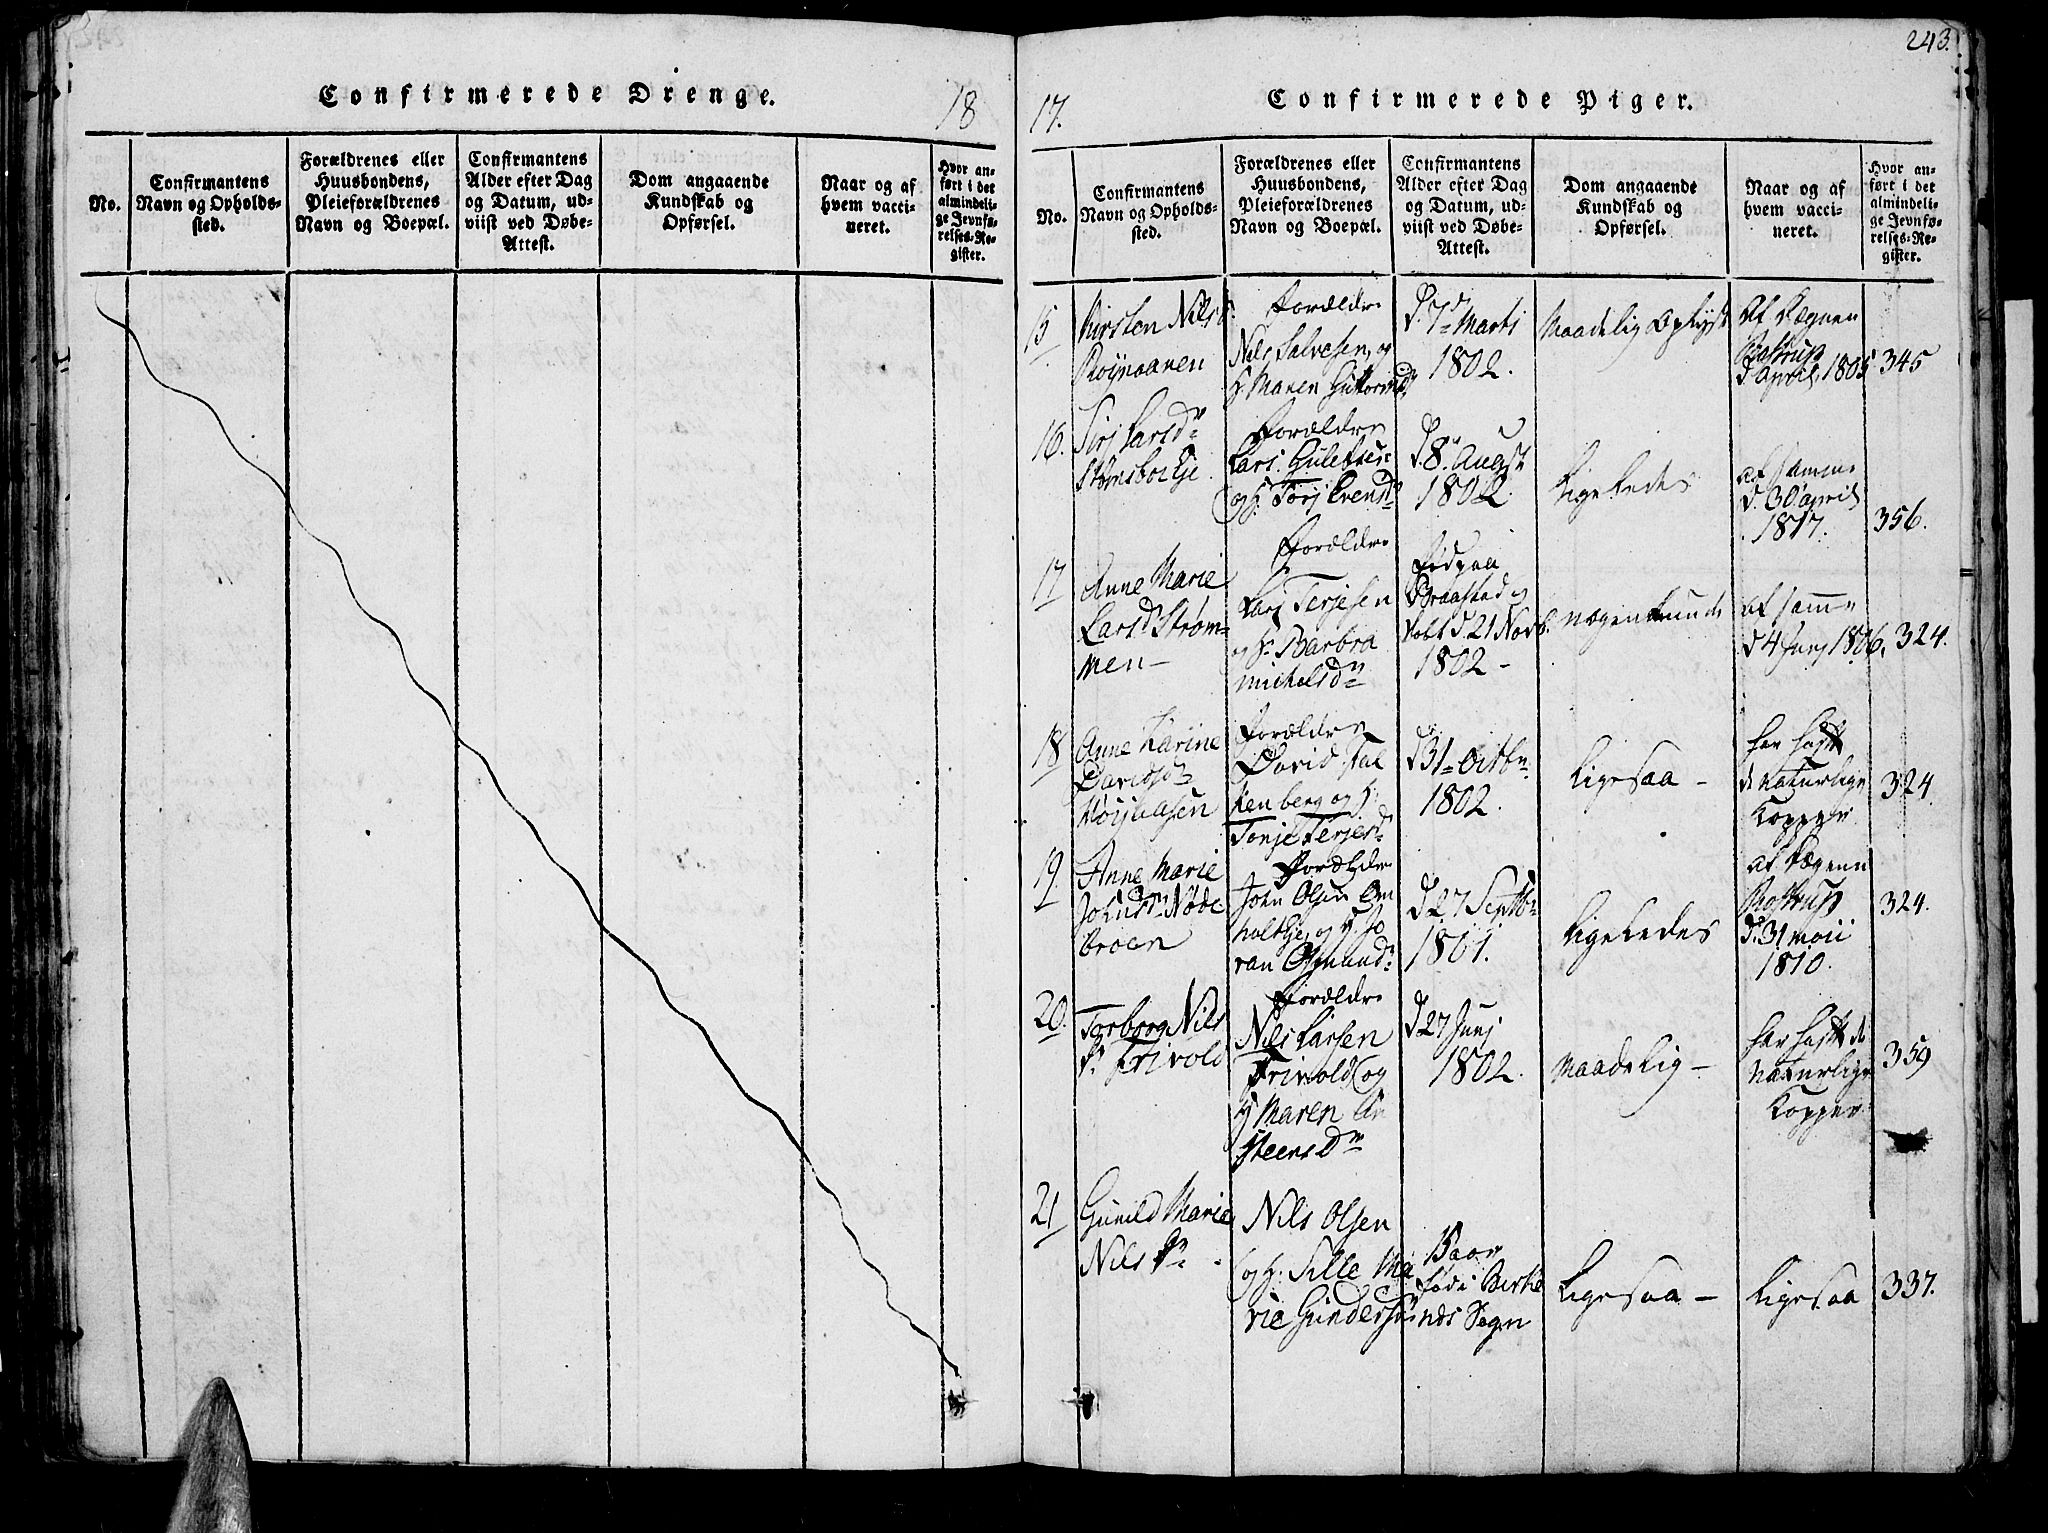 243.
Confirmerede Drenge.
18
No.
Confirmantens
Navn og Opholds-
sted.
Forældrenes eller
Huusbondens,
Pleieforældrenes
Navn og Boepæl.
Confirmantens
Alder efter Dag
og Datum, ud-
viist ved Døbe-
Attest.
Dom angaaende
Kundskab og
Opførsel.
Naar og af
hvem vacci-
neret.
Hvor an-
ført i det
almindeli-
ge Jevnfø-
relses-Re-
gister.
17.
Confirmerede Piger.
No.
Confirmantens
Navn og Opholds-
sted.
Forældrenes eller
Huusbondens,
Pleieforældrenes
Navn og Boepæl.
Confirmantens
Alder efter Dag
og Datum, ud-
viist ved Døbe-
Attest.
Dom angaaende
Kundskab og
Opførsel.
Naar og af
hvem vacci-
neret.
Hvor an-
ført i det
almindeli-
ge Jevnfø-
relses-Re-
gister.
15
Kirsten Nilsd.
Forældre
Nils Salvesen, og
H. Maren Guttormsd.
d. 7 Martj
1802.
Maadelig oplyst
Af Degnen
Bostrup
d april 1805
345
16.
Sirj Larsd.
Forældre
Lars
og H. Torj Evensd.
d. 8. August
1802
Ligeledes
af samme
d. 30 april
1817.
356.
17
Anne Marie
Larsd. Strøm-
men -
Forældre
Lars Terjesen
og H. Barbra
Michelsd.
Fød paa
og
døbt d. 21 Novb.
1802 -
af samme
d 4 Junj 1806,
324.
18
Anne Karine
Davidsd.
Forældre
David Fal
kenberg og H.
Tonje Terjesd.
d 31 Octbr.
1802.
Ligesaa -
har haft
de naturlige
Kopper
324.
19.
Anne Marie
Johnsd. Nøde
broen
Forældre
John Olsen Om
holt og H. Jo
ran Osmundd.
d 27 Septbr.
1801.
Ligeledes
af Degnen
Bostrup
d. 31 Maii
1810.
324.
20.
Torborg Nils
d. Frivold
Forældre
Nils Larsen
Frivold og
H Maren An
steensd.
d 27 Junj
1802.
Maadelig -
har haft de
naturlige
Kopper
359
21
Gunild Marie
Nilsd.
Nils Olsen
og H. Sille Ma
rie Gundersd.
15 aar
født i Birke
næs Sogn
Ligesaa -
Ligesaa
337.